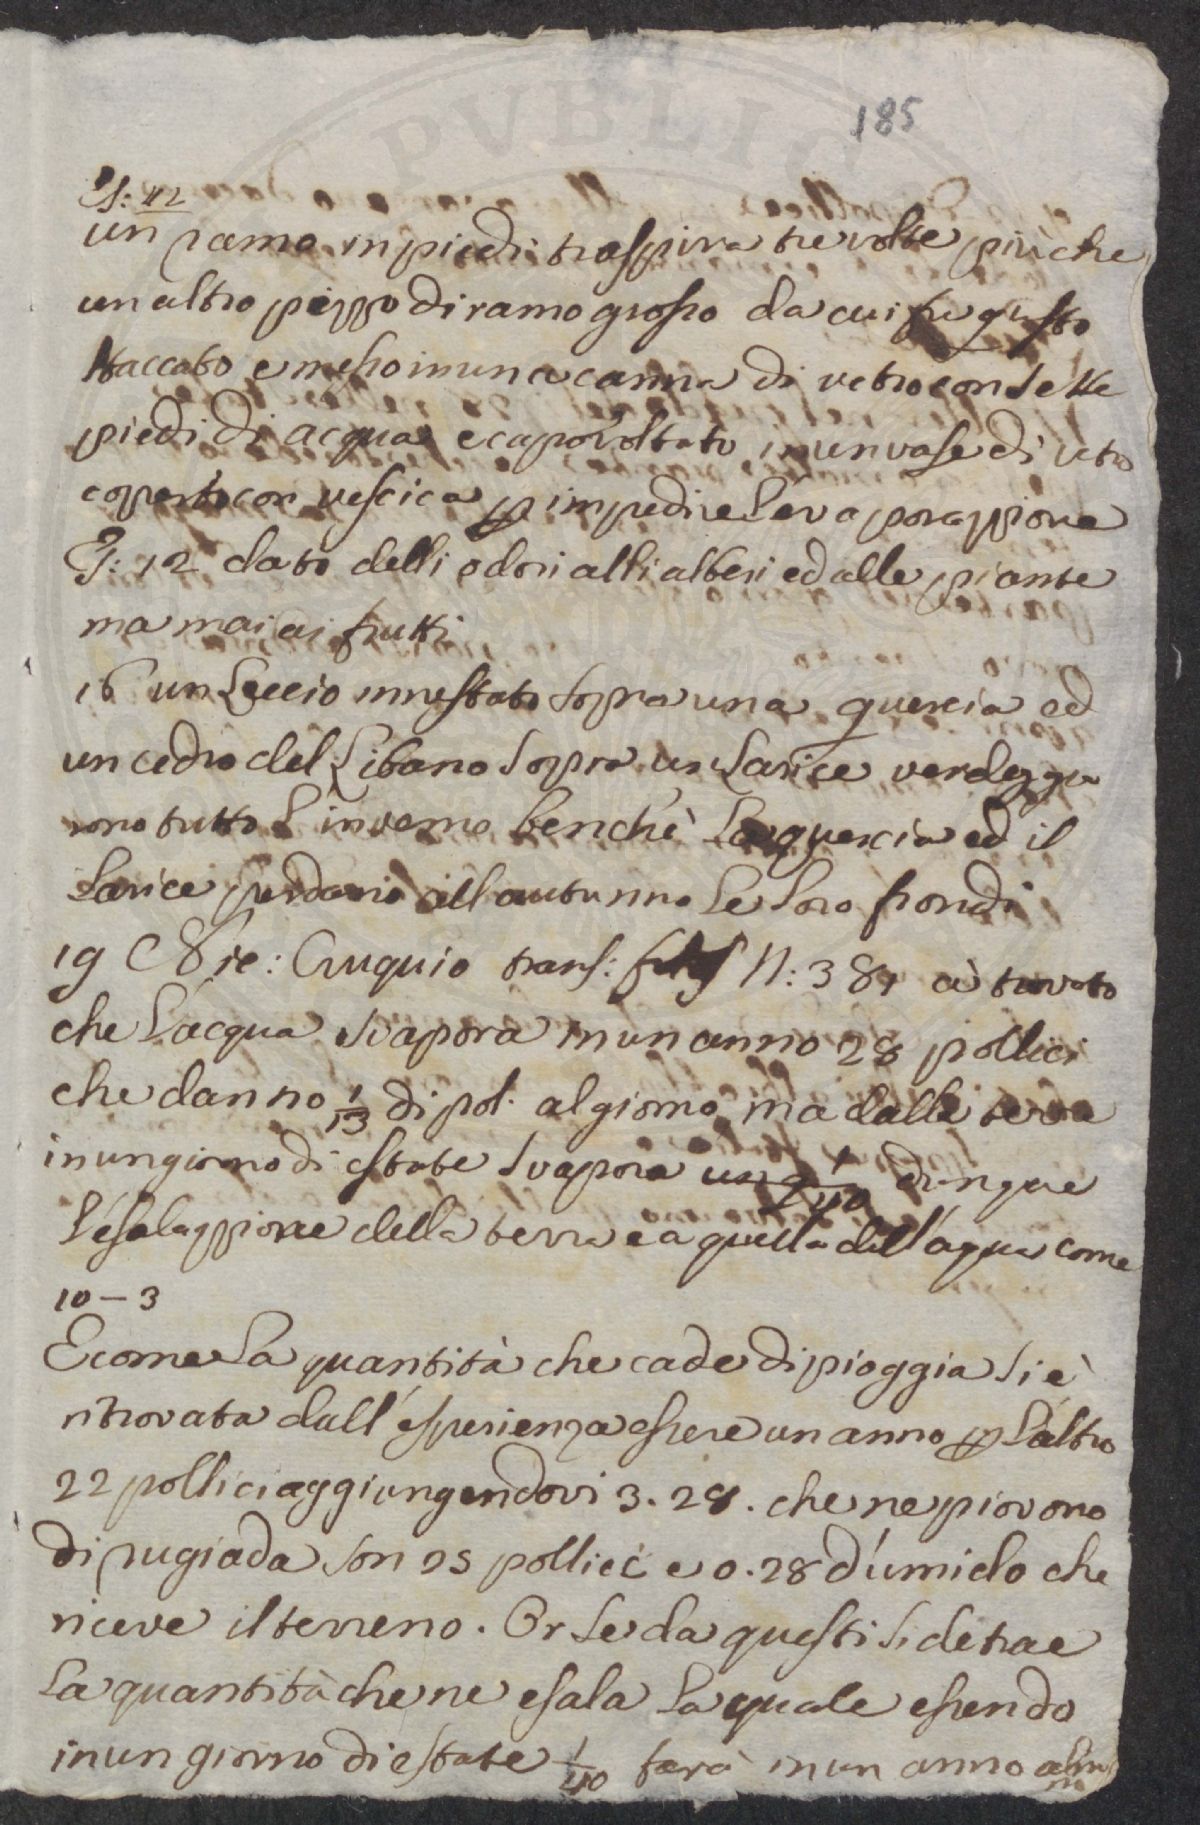 185
Es: 42
un ramo in piedi traspira tre volte più che
un altro pezzo di ramo grosso da cui fu questo
staccato e messo in una canna di vetro con sette
piedi di acqua e capovoltato in un vase di vetro
coperto con vescica p impedire l'evaporazzione
Es: 12 dato delli odori alli alberi ed alle piante
ma mai ai frutti
16 un Leccio innestato sopra una quercia ed
un cedro del Libano sopra un Larice verdeggia
rono tutto l'inverno benchè la quercia ed il
Larice perdano all'autunno le loro frondi
19 Cruquio trans: N: 381 à trovato
che l'acqua svapora in un anno 28 pollici
che danno 1/13 di pol. al giorno ma dalla terra
in un giorno di estate svapora un 1/40 dunque
l'ésalazzione della terra e a quella dell'aqua come
10 – 3
E come la quantità che cade di pioggia si è
ritrovata dall'ésperienza essere un anno p l'áltro
22 pollici aggiungendovi 3. 28. che ne piovono
di rugiada son 25 pollici e 0. 28 d'umido che
riceve il terreno. Or se da questi si detrae
la quantità che ne esala la quale essendo
in un giorno di estate 1/40 farà in un anno almeno